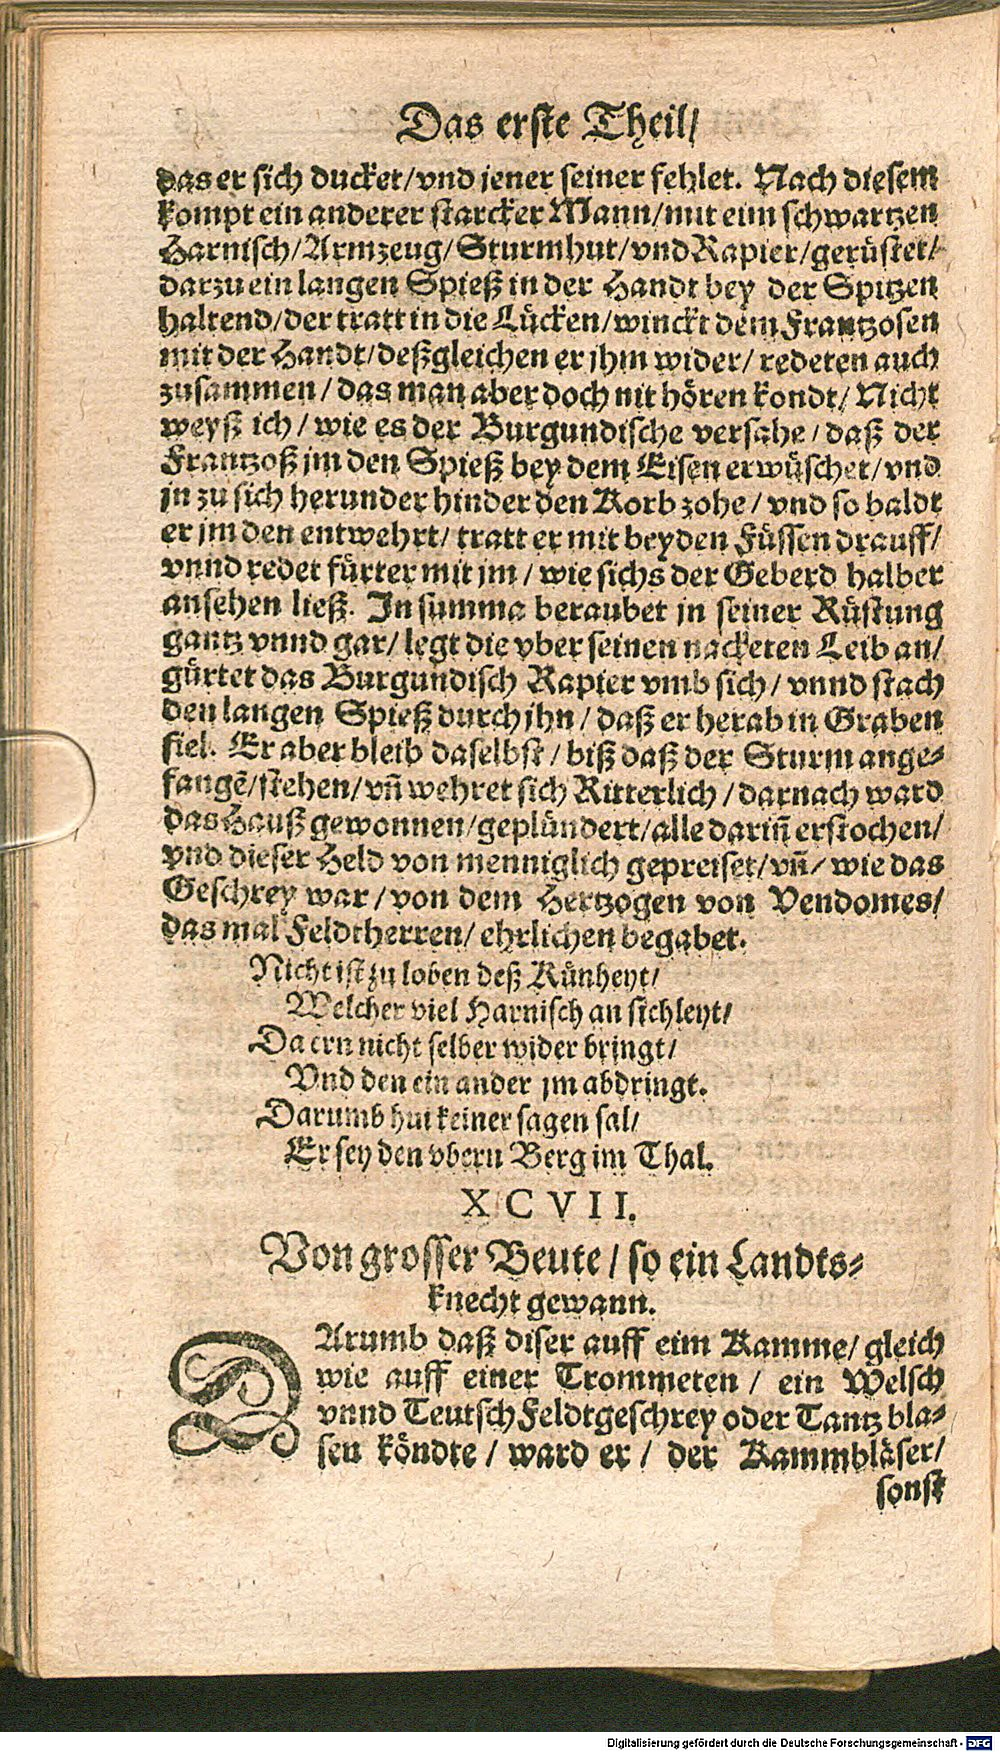 Das erste Theil/
das er sich ducket/vnd jener seiner fehlet. Nach diesem
kompt ein anderer starcker Mann/mit eim schwartzen
Harnisch/Armzeug/Sturmhut/vnd Rapier/gerüstet/
darzu ein langen Spieß in der Handt bey der Spitzen
haltend/der tratt in die Lücken/winckt dem Frantzosen
mit der Handt/deßgleichen er jhm wider/ redeten auch
zusammen/ das man aber doch nit hören kondt/ Nicht
weyß ich/ wie es der Burgundische versahe/ daß der
Frantzoß jm den Spieß bey dem Eisen erwüschet/vnd
jn zu sich herunder hinder den Korb zohe/ vnd so baldt
er jm den entwehrt/ tratt er mit beyden Füssen drauff/
vnnd redet fürter mit jm/ wie sichs der Geberd halber
ansehen ließ. In summa beraubet jn seiner Rüstung
gantz vnnd gar/ legt die vber seinen nacketen Leib an/
gürtet das Burgundisch Rapier vmb sich/ vnnd stach
den langen Spieß durch jhn/ daß er herab in Graben
fiel. Er aber bleib daselbst/ biß daß der Sturm ange⸗
fangē/stehen/vñ wehret sich Ritterlich/darnach ward
das Hauß gewonnen/geplündert/alle dariñ erstochen/
vnd dieser Held von menniglich gepreiset/vñ/ wie das
Geschrey war/von dem Hertzogen von Vendomes/
das mal Feldtherren/ ehrlichen begabet.
Nicht ist zu loben deß Künheyt/
Welcher viel Harnisch an sich leyt/
Da ern nicht selber wider bringt/
Vnd den ein ander jm abdringt.
Darumb hui keiner sagen sal/
Er sey den vbern Berg im Thal.
XCVII.
Von grosser Beute/ so ein Landts⸗
knecht gewann.
DArumb daß diser auff eim Kamme/ gleich
wie auff einer Trommeten/ ein Welsch
vnnd Teutsch Feldtgeschrey oder Tantz bla⸗
sen köndte/ ward er/ der Kammbläser/
sonst
Digitalisierung gefördert durch die Deutsche Forschungsgemeinschaft - DFG